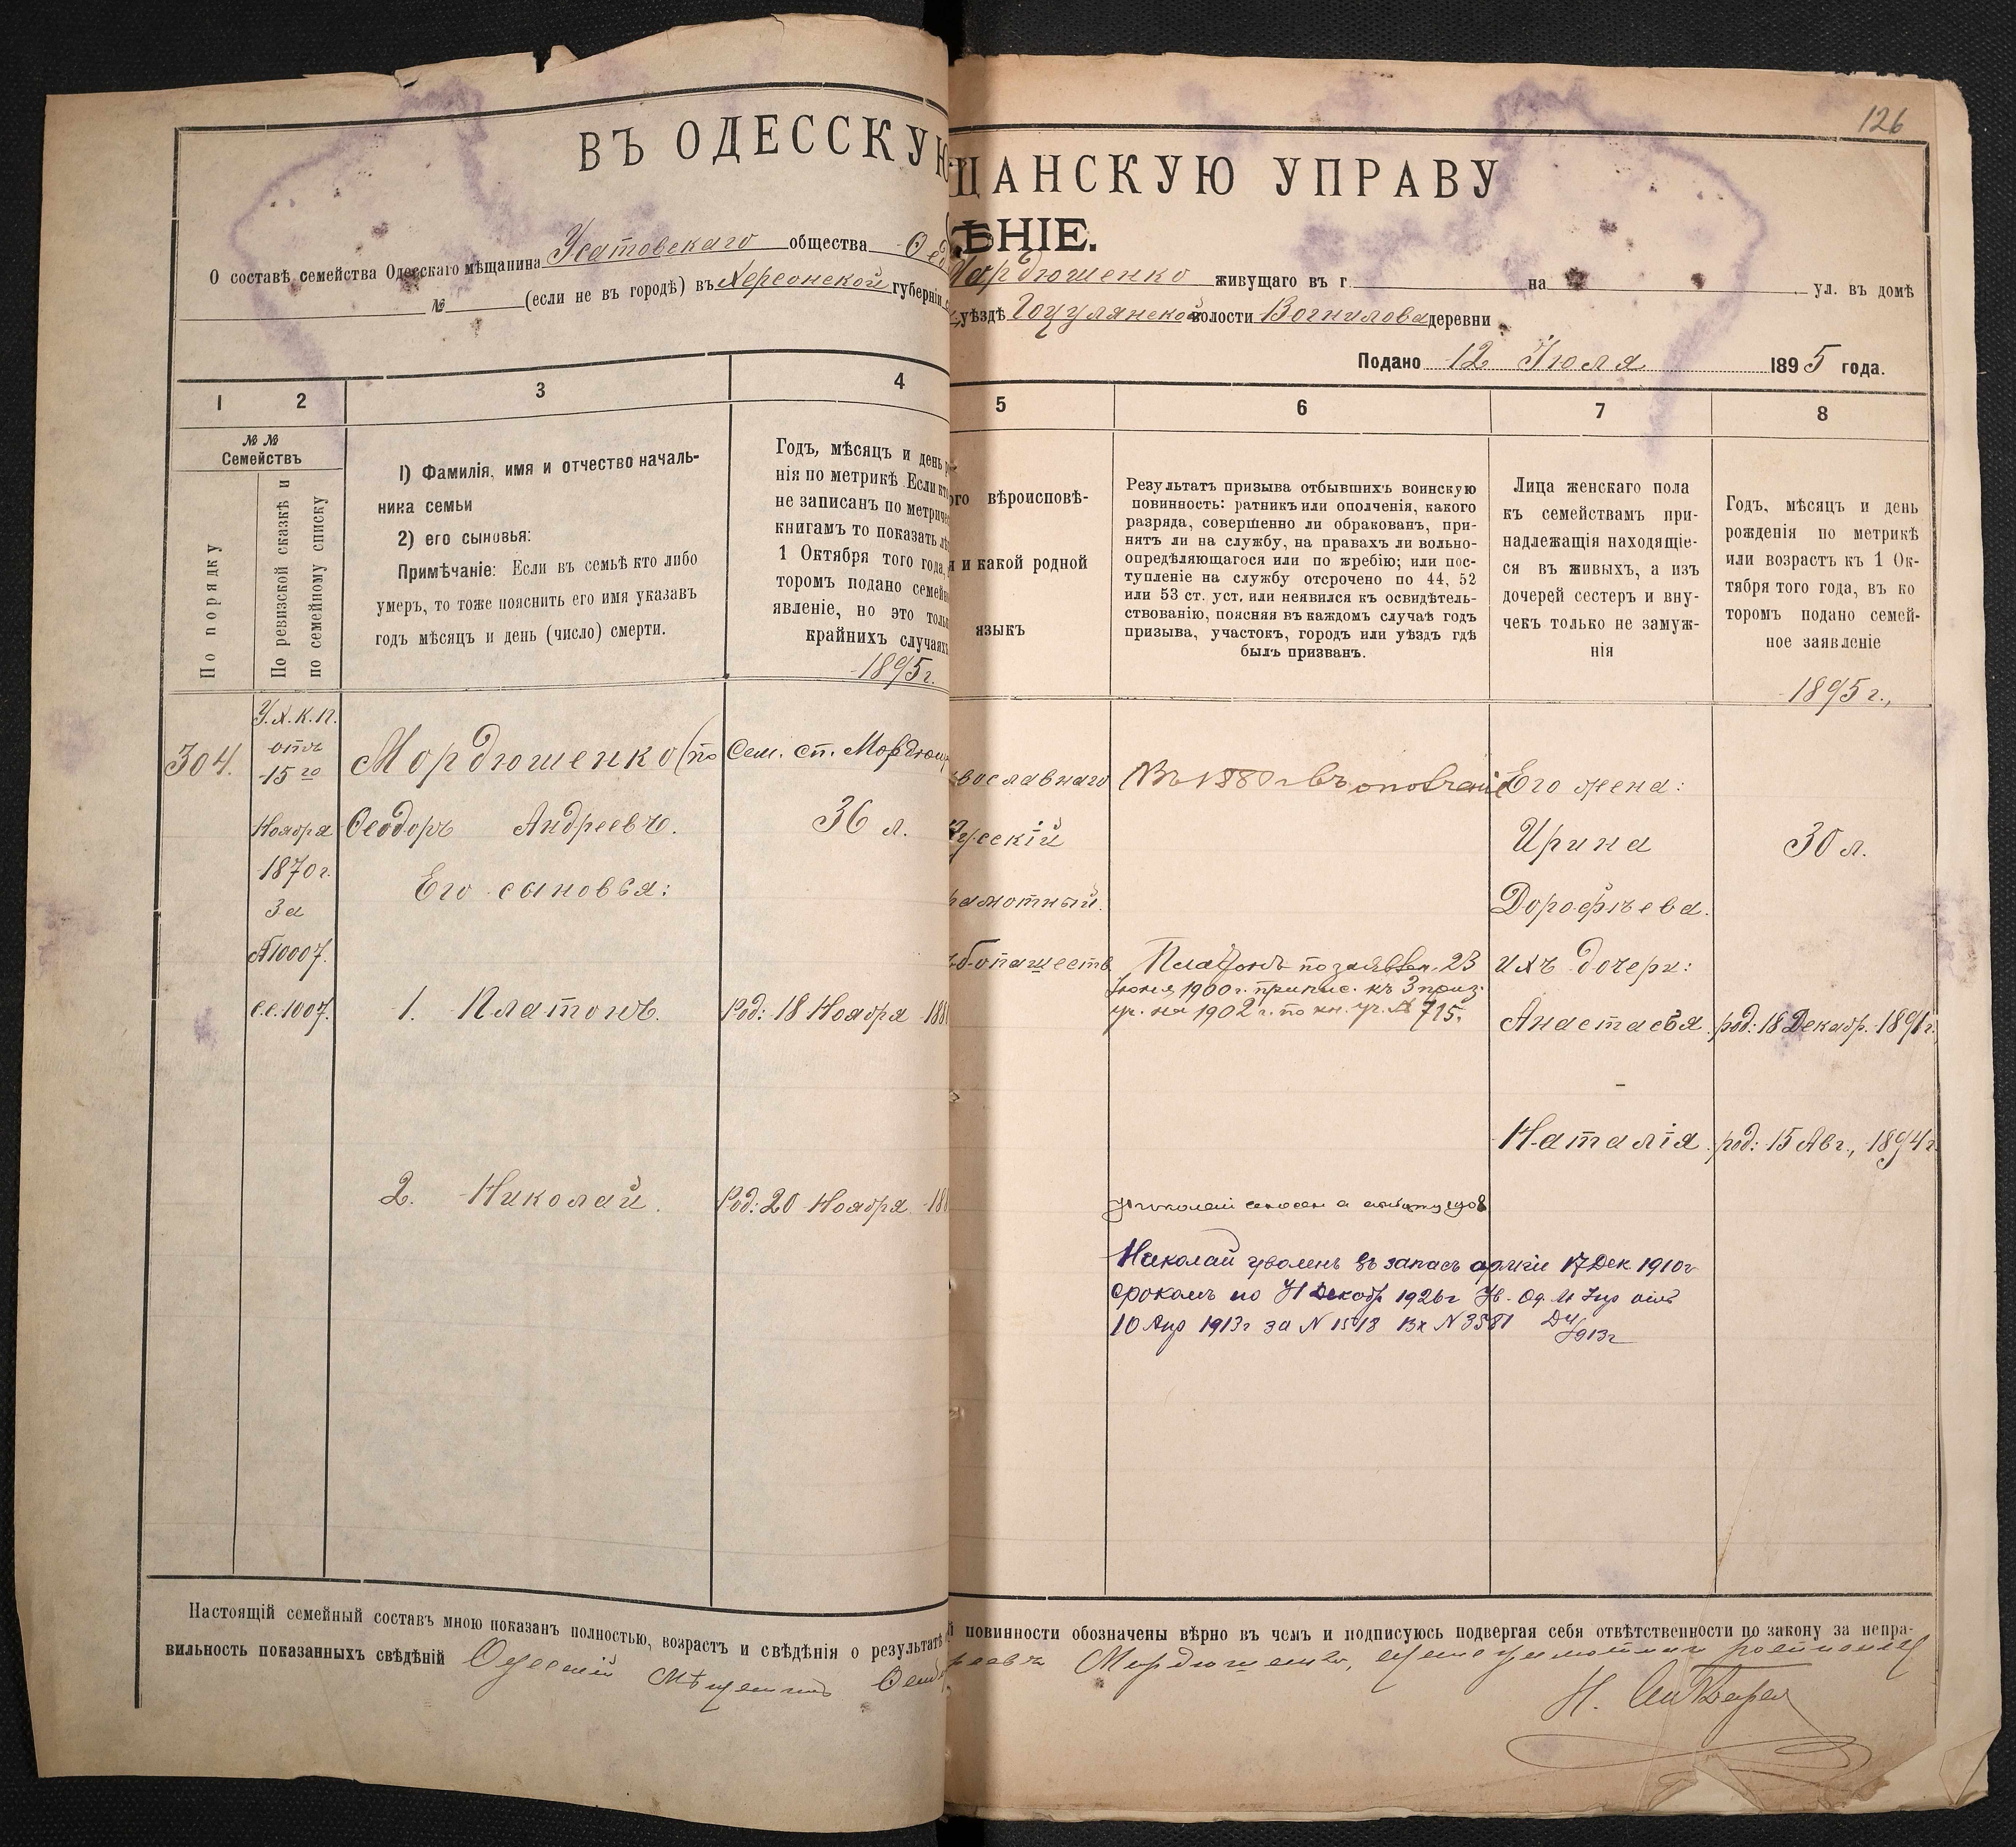 126
ВЪ ОДЕССКУЮ ЩАНСКУЮ УПРАВУ
ѢНІЕ.
О составѣ семейства Одесскаго мѣщанина Усатовскаго общества Од Мордюшенко живущаго въ г на ул. въ домѣ
№ (если не въ городѣ) въ Херсонской губерніи уѣздѣ волости деревни
Подано 12 Іюля 1895 года.
1 2 3 4 5 6 7 8
№ №
Семействъ
По порядку
По ревизской сказкѣ и
по семейному списку
1) Фамилія, имя и отчество началь-
ника семьи
2) его сыновья:
Примѣчаніе: Если въ семьѣ кто либо
умеръ, то тоже пояснить его имя указавъ
годъ мѣсяцъ и день (число) смерти.
Годъ, мѣсяцъ и день
нія по метрикѣ Если кто
не записанъ по метриче
книгамъ то показать лѣ
1 Октября того года,
торомъ подано семей
явленіе, но это толь
крайнихъ случаяхъ
1895 г.
ого вѣроисповѣ-
и какой родной
языкъ
Результатъ призыва отбывшихъ воинскую
повинность: ратникъ или ополченія, какого
разряда, совершенно ли обракованъ, при-
нятъ ли на службу, на правахъ ли вольно-
опредѣляющагося или по жребію; или пос-
тупленіе на службу отсрочено по 44, 52
или 53 ст. уст. или неявился къ освидѣтель-
ствованію, поясняя въ каждомъ случаѣ годъ
призыва, участокъ, городъ или уѣздъ гдѣ
былъ призванъ.
Лица женскаго пола
къ семействамъ при-
надлежащія находящіе-
ся въ живыхъ, а изъ
дочерей сестеръ и вну-
чекъ только не замуж-
нія
Годъ, мѣсяцъ и день
рожденія по метрикѣ
или возрастъ къ 1 Ок-
тября того года, въ ко
торомъ подано семей-
ное заявленіе
1895 г.,
304.
У.Х.К.П.
отъ
15го
Ноября
1870 г.
за
№10007.
с.с.1007.
Мордюшенко (по Сем. сп. Мордюш
Ѳеодоръ Андреевъ. 36 л.
Его сыновья:
1. Платонъ. Род: 18 Ноября 188
2. Николай. Род: 20 Ноября 18
вославнаго
Русскій
рамотный.
Въ 1880 г въ ополченіе
Платонъ по заявлен. 23
Іюня 1900 г. припис. къ 3 приз.
уч. на 1902 г. по кн. уч. № 715.
Николай уволенъ въ запасъ арміи 17 Дек 1910 г
срокомъ по 31 Декабр 1926 г Ув. Од. У
10 Апр 1913 г за N 1518 Вх N 3581
1913 г
Его жена:
Ирина 30 л.
Дорофѣева.
ихъ дочери:
Анастасья род: 18 Декабр. 1891 г.
Наталія род: 15 Авг., 1894 г.
Настоящій семейный составъ мною показанъ полностью, возрастъ и свѣдѣнія о результатѣ й повинности обозначены вѣрно въ чемъ и подписуюсь подвергая себя отвѣтственности по закону за непра-
вильность показанныхъ свѣдѣній Одесскій Мѣщанинъ Ѳеод реевъ Мордюшенко,